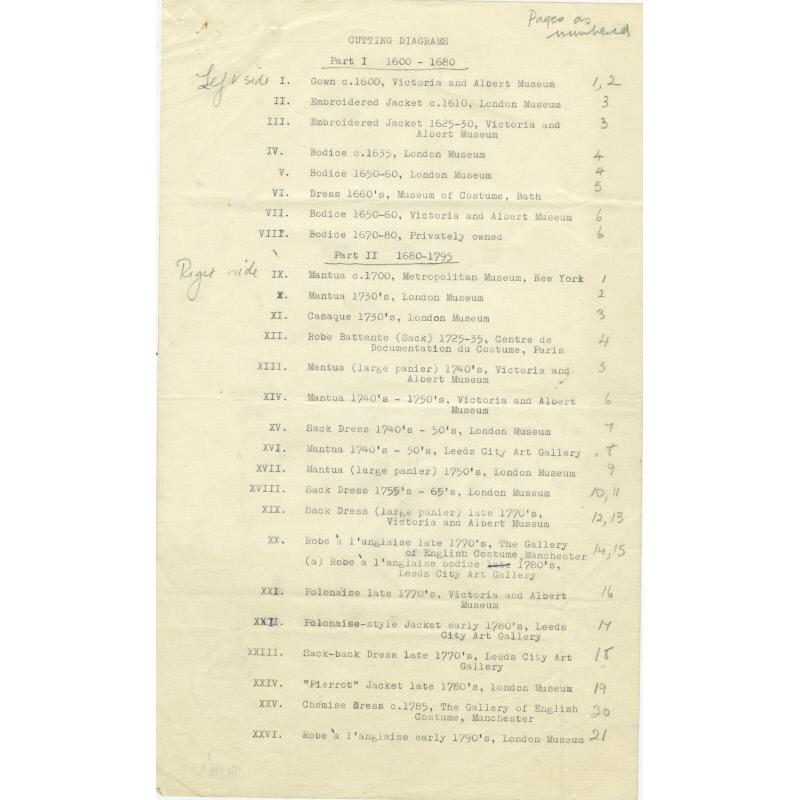 Pages as
numbered
CUTTING DIAGRAMS
Part I 1600 - 1680
Left side I. Gown c.1600, Victoria and Albert Museum 1, 2
II. Embroidered Jacket c.1610, London Museum 3
III. Embroidered Jacket 1625-30, Victoria and 3
Albert Museum
IV. Bodice c.1635, London Museum 4
V. Bodice 1650-60, London Museum 4
VI. Dress 1660's, Museum of Costume, Bath 5
VII. Bodice 1650-60, Victoria and Albert Museum 6
VIII. Bodice 1670-80, Privately owned 6
Part II 1680-1795
Right side IX. Mantua c.1700, Metropolitan Museum, New York 1
X. Mantua 1730's, London Museum 2
XI. Casaque 1730's, London Museum 3
XII. Robe Battante (Sack) 1725-35, Centre de 4
Documentation du Costume, Paris
XIII. Mantua (large panier) 1740's, Victoria and 5
Albert Museum
XIV. Mantua 1740's - 1750's, Victoria and Albert 6
Museum
XV. Sack Dress 1740's - 50's, London Museum 7
XVI. Mantua 1740's - 50's, Leeds City Art Gallery 8
XVII. Mantua (large panier) 1750's, London Museum 9
XVIII. Sack Dress 1755's - 65's, London Museum 10, 11
XIX. Sack Dress (large panier) late 1770's, 12, 13
Victoria and Albert Museum
XX. Robe à l'anglaise late 1770's, The Gallery
of English Costume, Manchester 14, 15
(a) Robe à l'anglaise bodice late 1780's,
Leeds City Art Gallery
XXI. Polonaise late 1770's, Victoria and Albert 16
Museum
XXII. Polonaise-style Jacket early 1780's, Leeds 17
City Art Gallery
XXIII. Sack-back Dress late 1770's, Leeds City Art 18
Gallery
XXIV. "Pierrot" Jacket late 1780's, London Museum 19
XXV. Chemise Dress c.1785, The Gallery of English 20
Costume, Manchester
XXVI. Robe à l'anglaise early 1790's, London Museum 21